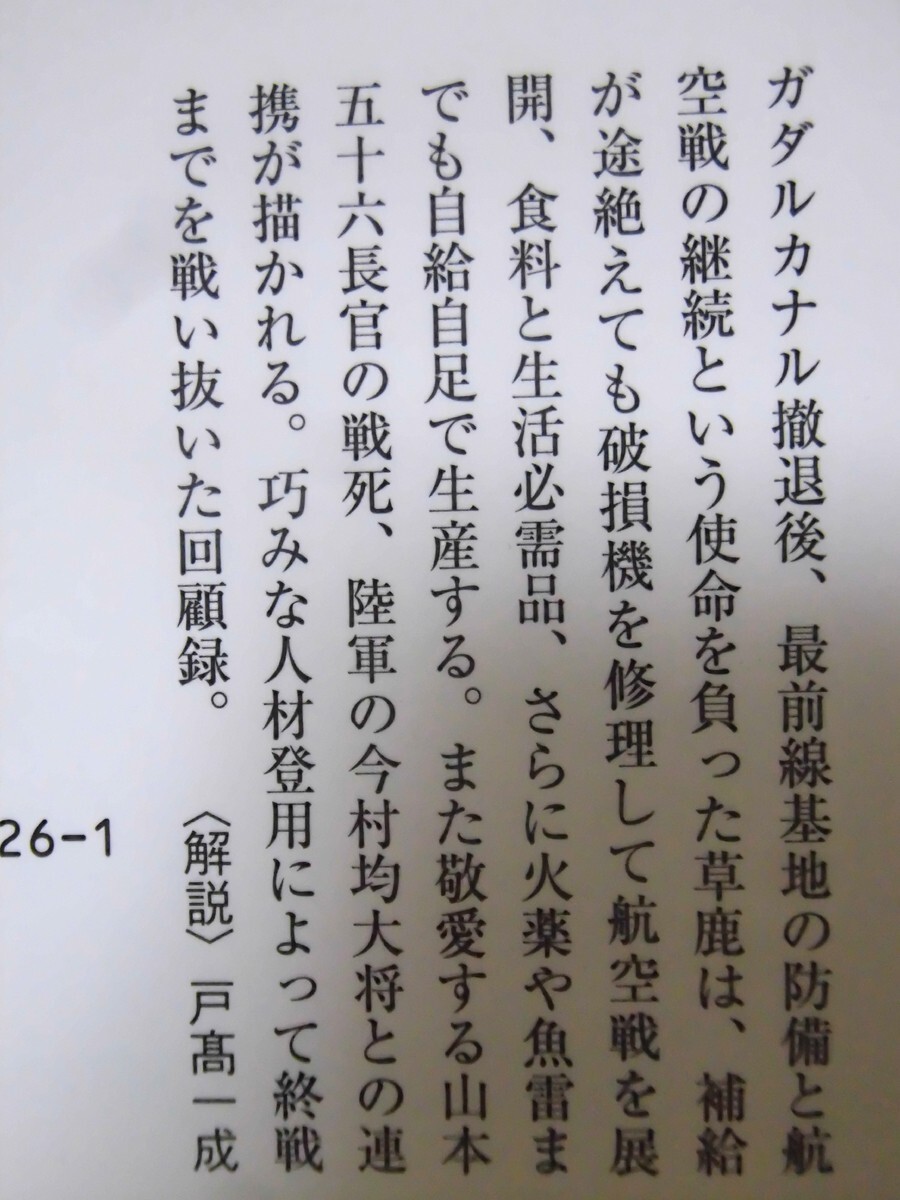 ガダルカナル撤退後、最前線基地の防備と航
空戦の継続という使命を負った草鹿は、補給
が途絶えても破損機を修理して航空戦を展
開、食料と生活必需品、さらに火薬や魚雷ま
でも自給自足で生産する。また敬愛する山本
五十六長官の戦死、陸軍の今村均大将との連
携が描かれる。巧みな人材登用によって終戦
までを戦い抜いた回顧録。
〈解説〉戸髙一成
26-1